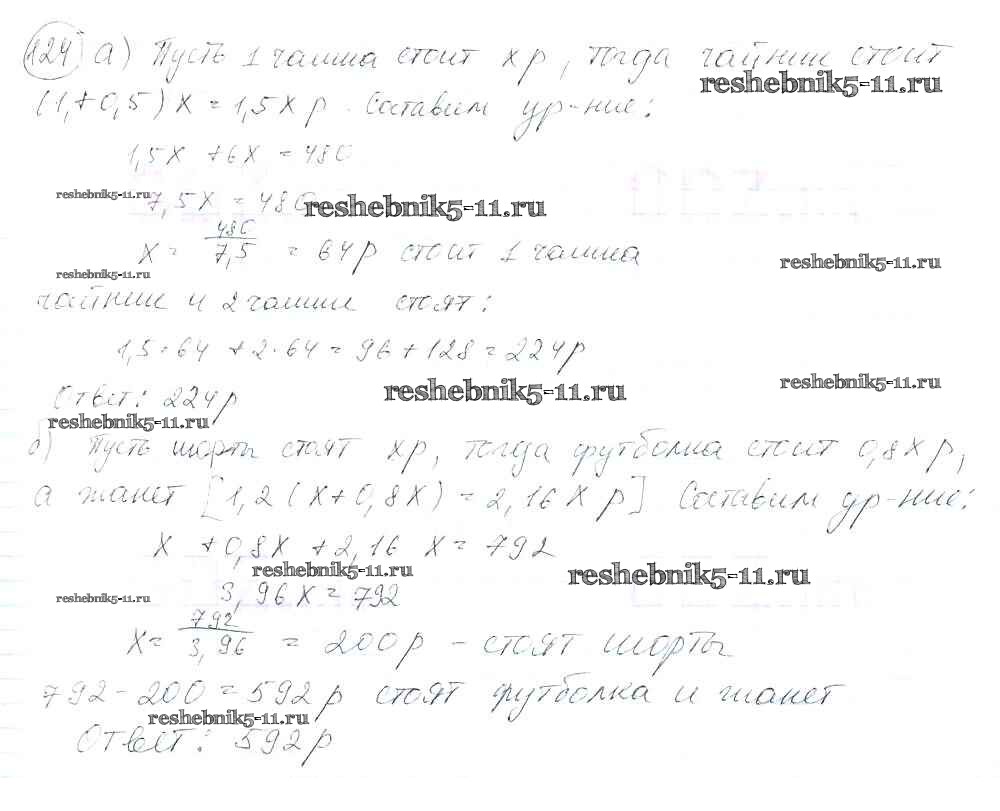 124 а) Пусть 1 чашка стоит x р, тогда чайник стоит
reshebnik5-11.ru
(1+0,5)x = 1,5x р. Составим ур-ние:
1,5x + 6x = 480
reshebnik5-11.ru
7,5x = 480
reshebnik5-11.ru
x = 480/7,5 = 64 р стоит 1 чашка
reshebnik5-11.ru
reshebnik5-11.ru
чайник и 2 чашки стоят:
1,5·64 + 2·64 = 96 + 128 = 224 р
reshebnik5-11.ru
reshebnik5-11.ru
Ответ: 224 р
reshebnik5-11.ru
б) Пусть шорты стоят x р, тогда футболка стоит 0,8x р,
а жакет [1,2(x+0,8x) = 2,16x р] Составим ур-ние:
x + 0,8x + 2,16 x = 792
reshebnik5-11.ru
reshebnik5-11.ru
reshebnik5-11.ru
3,96x = 792
x = 792/3,96 = 200 р - стоят шорты
792 - 200 = 592 р стоят футболка и жакет
reshebnik5-11.ru
Ответ: 592 р